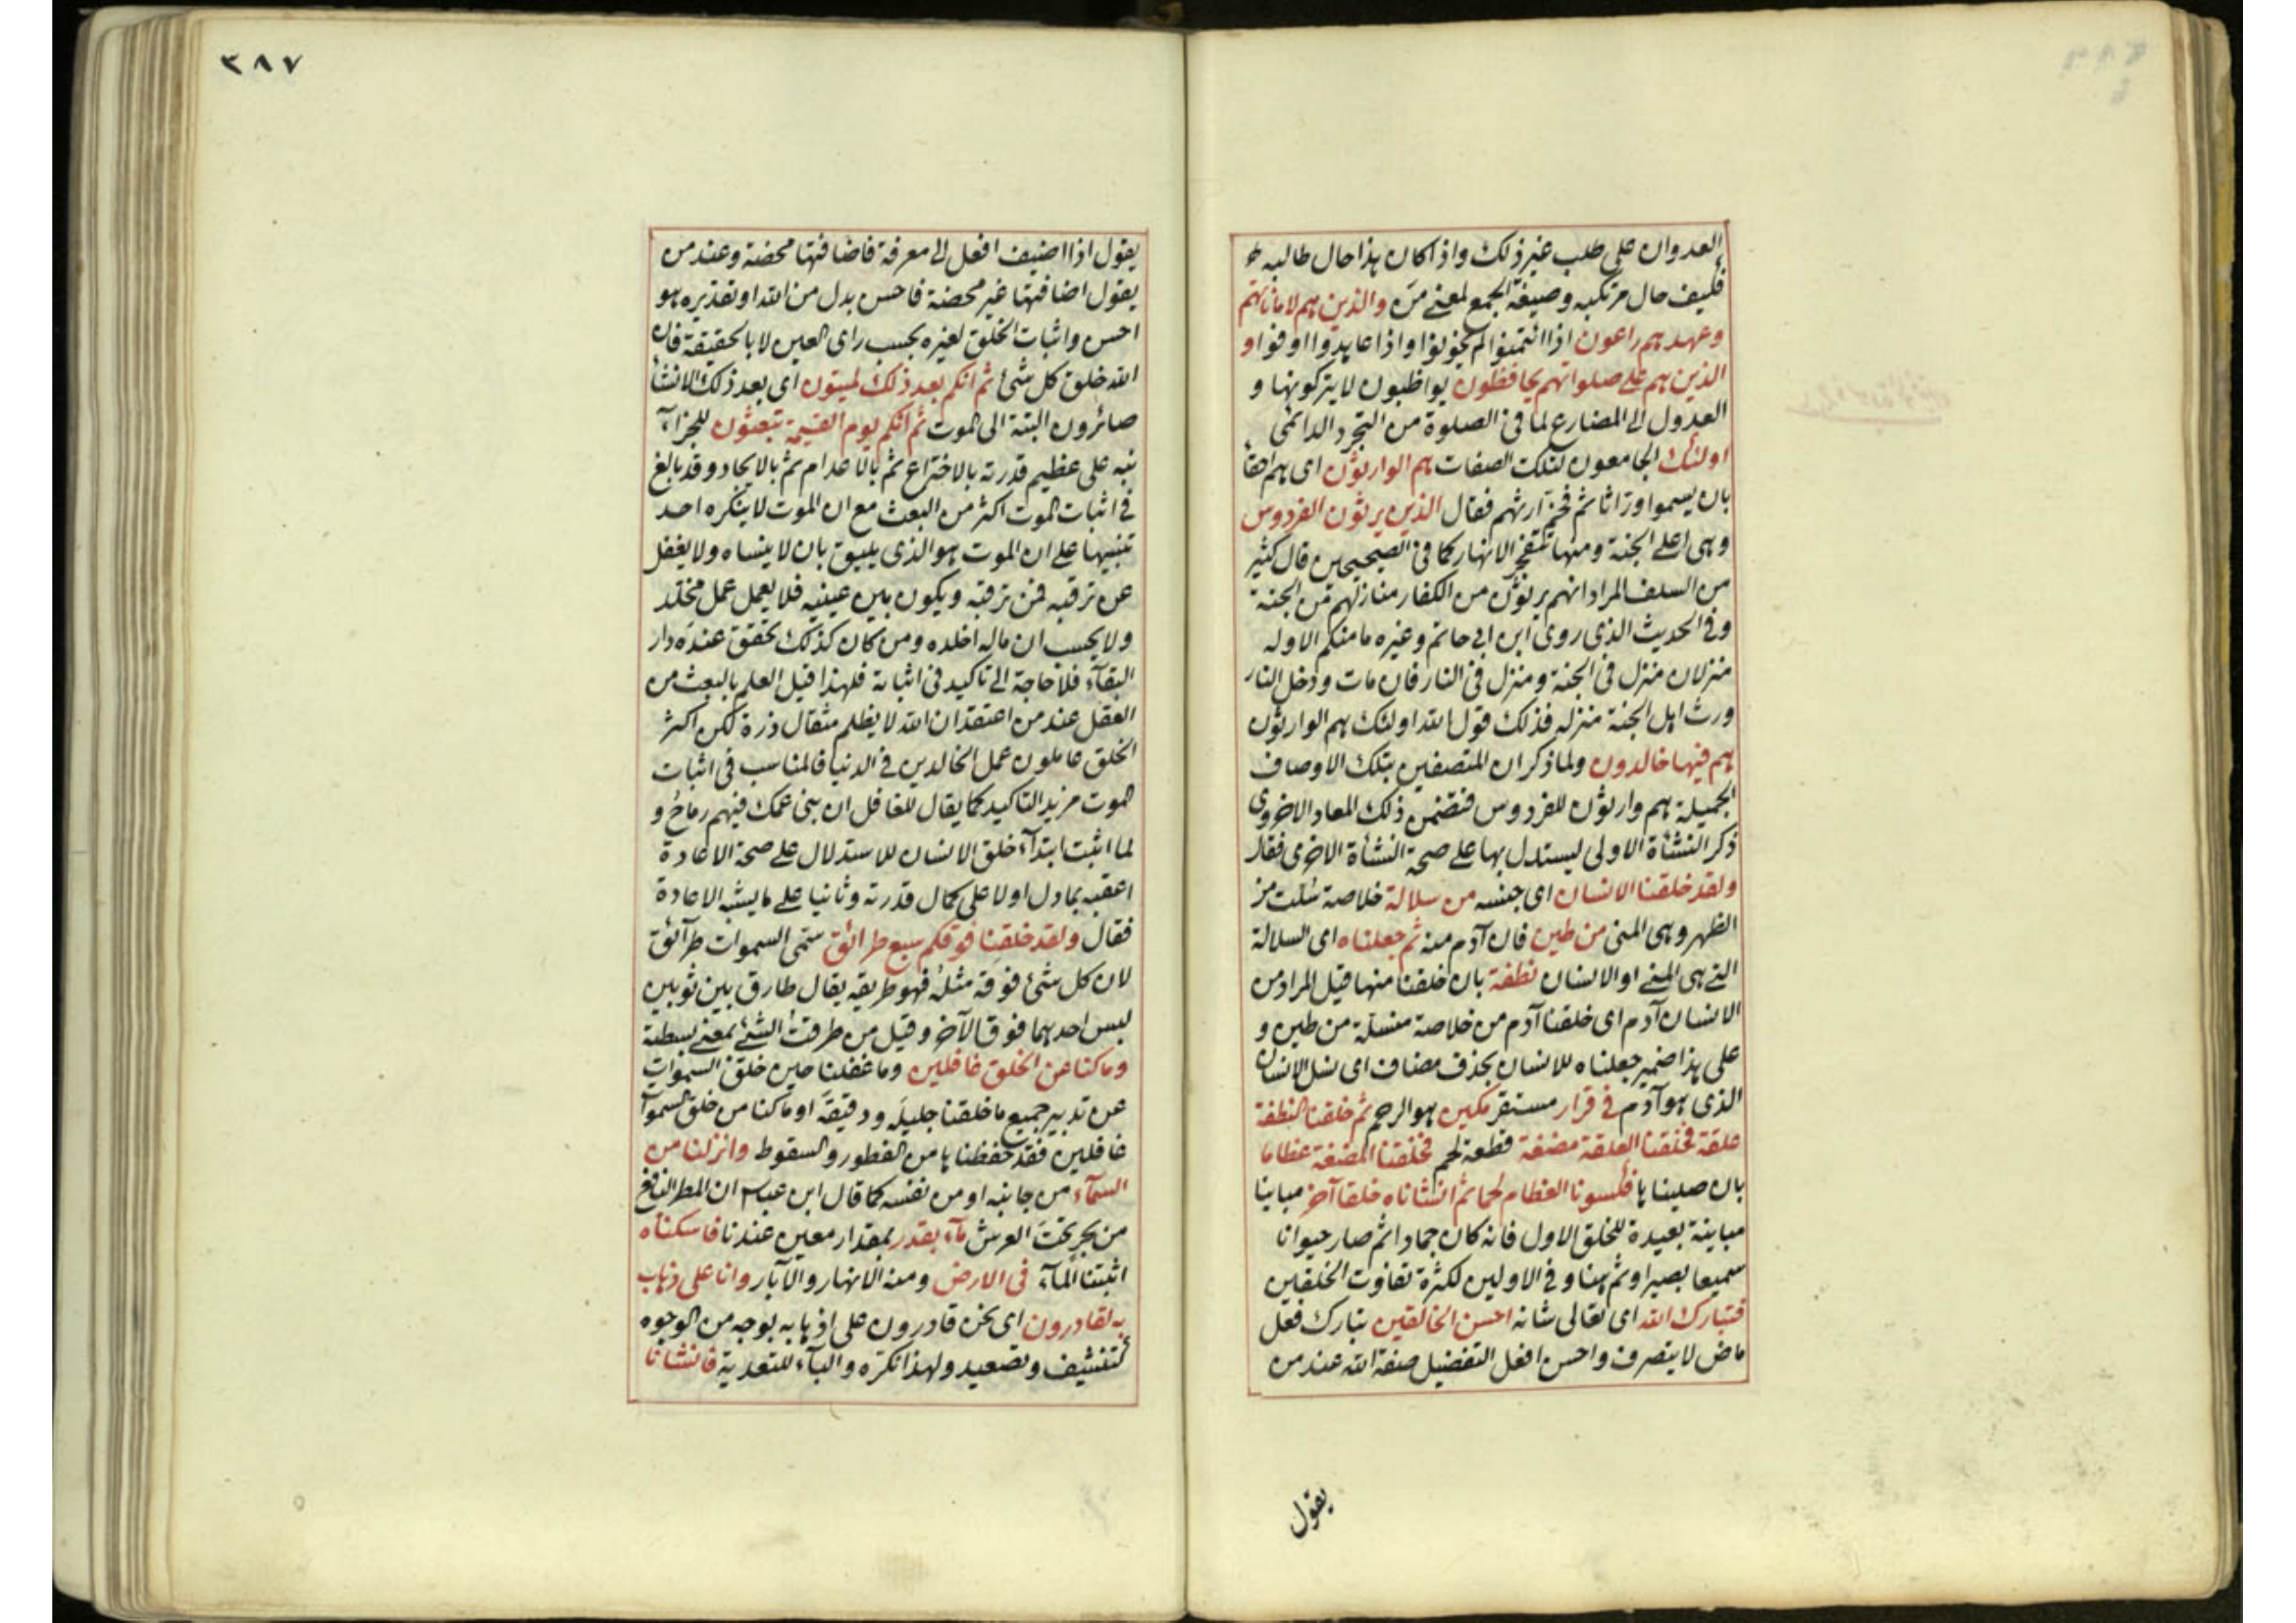 العدوان على طلب غير ذلك واذا كان هذا حال طالبه
فكيف حال مرتكبه وصيغة الجمع لمعنى من والذين هم لاماناتهم
وعهدهم راعون اذا ائتمنوا لم يخونوا واذا عاهدوا اوفوا و
الذين هم على صلواتهم يحافظون يواظبون لا يتركونها و
العدول الى المضارع لما فى الصلوة من التجرد الدائمى
اولئك الجامعون لتلك الصفات هم الوارثون اى هم احقا
بان يسموا وراثا ثم فخم ارثهم فقال الذين يرثون الفردوس
وهى اعلى الجنة ومنها تتفجر الانهار كما فى الصحيحين قال كثير
من السلف المراد انهم يرثون من الكفار منازلهم من الجنة
وفى الحديث الذى روى ابن ابى حاتم وغيره ما منكم الا وله
منزلان منزل فى الجنة ومنزل فى النار فان مات ودخل النار
ورث اهل الجنة منزله فذلك قول الله اولئك هم الوارثون
هم فيها خالدون ولما ذكر ان المتصفين بتلك الاوصاف
الجميلة هم وارثون للفردوس فتضمن ذلك المعاد الاخروى
ذكر النشأة الاولى ليستدل بها على صحة النشأة الاخرى فقال
ولقد خلقنا الانسان اى جنسه من سلالة خلاصة سلت من
الظهر وهى المنى من طين فان آدم منه ثم جعلناه اى السلالة
التى هى المنى او الانسان نطفة بان خلقنا منها قيل المراد من
الانسان آدم اى خلقنا آدم من خلاصة منسلة من طين و
على هذا ضمير جعلناه للانسان بحذف مضاف اى نسل الانسان
الذى هو آدم فى قرار مستقر مكين هو الرحم ثم خلقنا النطفة
علقة فخلقنا العلقة مضغة قطعة لحم فخلقنا المضغة عظاما
بان صلبناها فكسونا العظام لحما ثم انشاناه خلقا آخر مباينا
مباينة بعيدة للخلق الاول فانه كان جمادا ثم صار حيوانا
سميعا بصيرا وثم هنا وفى الاولين لكثرة تفاوت الخلقين
فتبارك الله اى تعالى شانه احسن الخالقين تبارك فعل
ماض لا يتصرف واحسن افعل التفضيل صفة الله عند من
يقول
٣٨٧
يقول اذا اضيف افعل الى معرفة فاضافتها محضة وعند من
يقول اضافتها غير محضة فاحسن بدل من الله او تقديره هو
احسن واثبات الخلق لغيره بحسب راى العين لا بالحقيقة فان
الله خلق كل شئ ثم انكم بعد ذلك لميتون اى بعد ذلك الانشأ
صائرون البتة الى الموت ثم انكم يوم القيمة تبعثون للجزآء
نبه على عظيم قدرته بالاختراع ثم بالاعدام ثم بالايجاد وقد بالغ
فى اثبات الموت اكثر من البعث مع ان الموت لا ينكره احد
تنبيها على ان الموت هو الذى يليق بان لا ينساه ولا يغفل
عن ترقبه فمن ترقبه ويكون بين عينيه فلا يعمل عمل مخلد
ولا يحسب ان ماله اخلده ومن كان كذلك تحقق عنده دار
البقآء فلا حاجة الى تاكيد فى اثباته فلهذا قيل العلم بالبعث من
العقل عند من اعتقد ان الله لا يظلم مثقال ذرة لكن اكثر
الخلق عاملون عمل الخالدين فى الدنيا فالمناسب فى اثبات
الموت مزيد التاكيد كما يقال للغافل ان بنى عمك فيهم رماح و
لما اثبت ابتدآء خلق الانسان للاستدلال على صحة الاعادة
اعقبه بما دل اولا على كمال قدرته وثانيا على ما يشبه الاعادة
فقال ولقد خلقنا فوقكم سبع طرائق سمى السموات طرآئق
لان كل شئ فوقه مثله فهو طريقه يقال طارق بين ثوبين
لبس احدهما فوق الآخر وقيل من طرقت الشئ بمعنى بسطته
وما كنا عن الخلق غافلين وما غفلنا حين خلق السموات
عن تدبير جميع ما خلقنا جليله ودقيقه او ما كنا من خلق السموآ
غافلين فقد حفظناها من الفطور والسقوط وانزلنا من
السمآء من جانبه او من نفسه كما قال ابن عباس ان المطر النافع
من بحر تحت العرش مآء بقدر بمقدار معين عندنا فاسكناه
اثبتنا المآء فى الارض ومنه الانهار والآبار وانا على ذهاب
به لقادرون اى نحن قادرون على اذهابه بوجه من الوجوه
كتنشيف وتصعيد ولهذا نكره والبآء للتعدية فانشانا